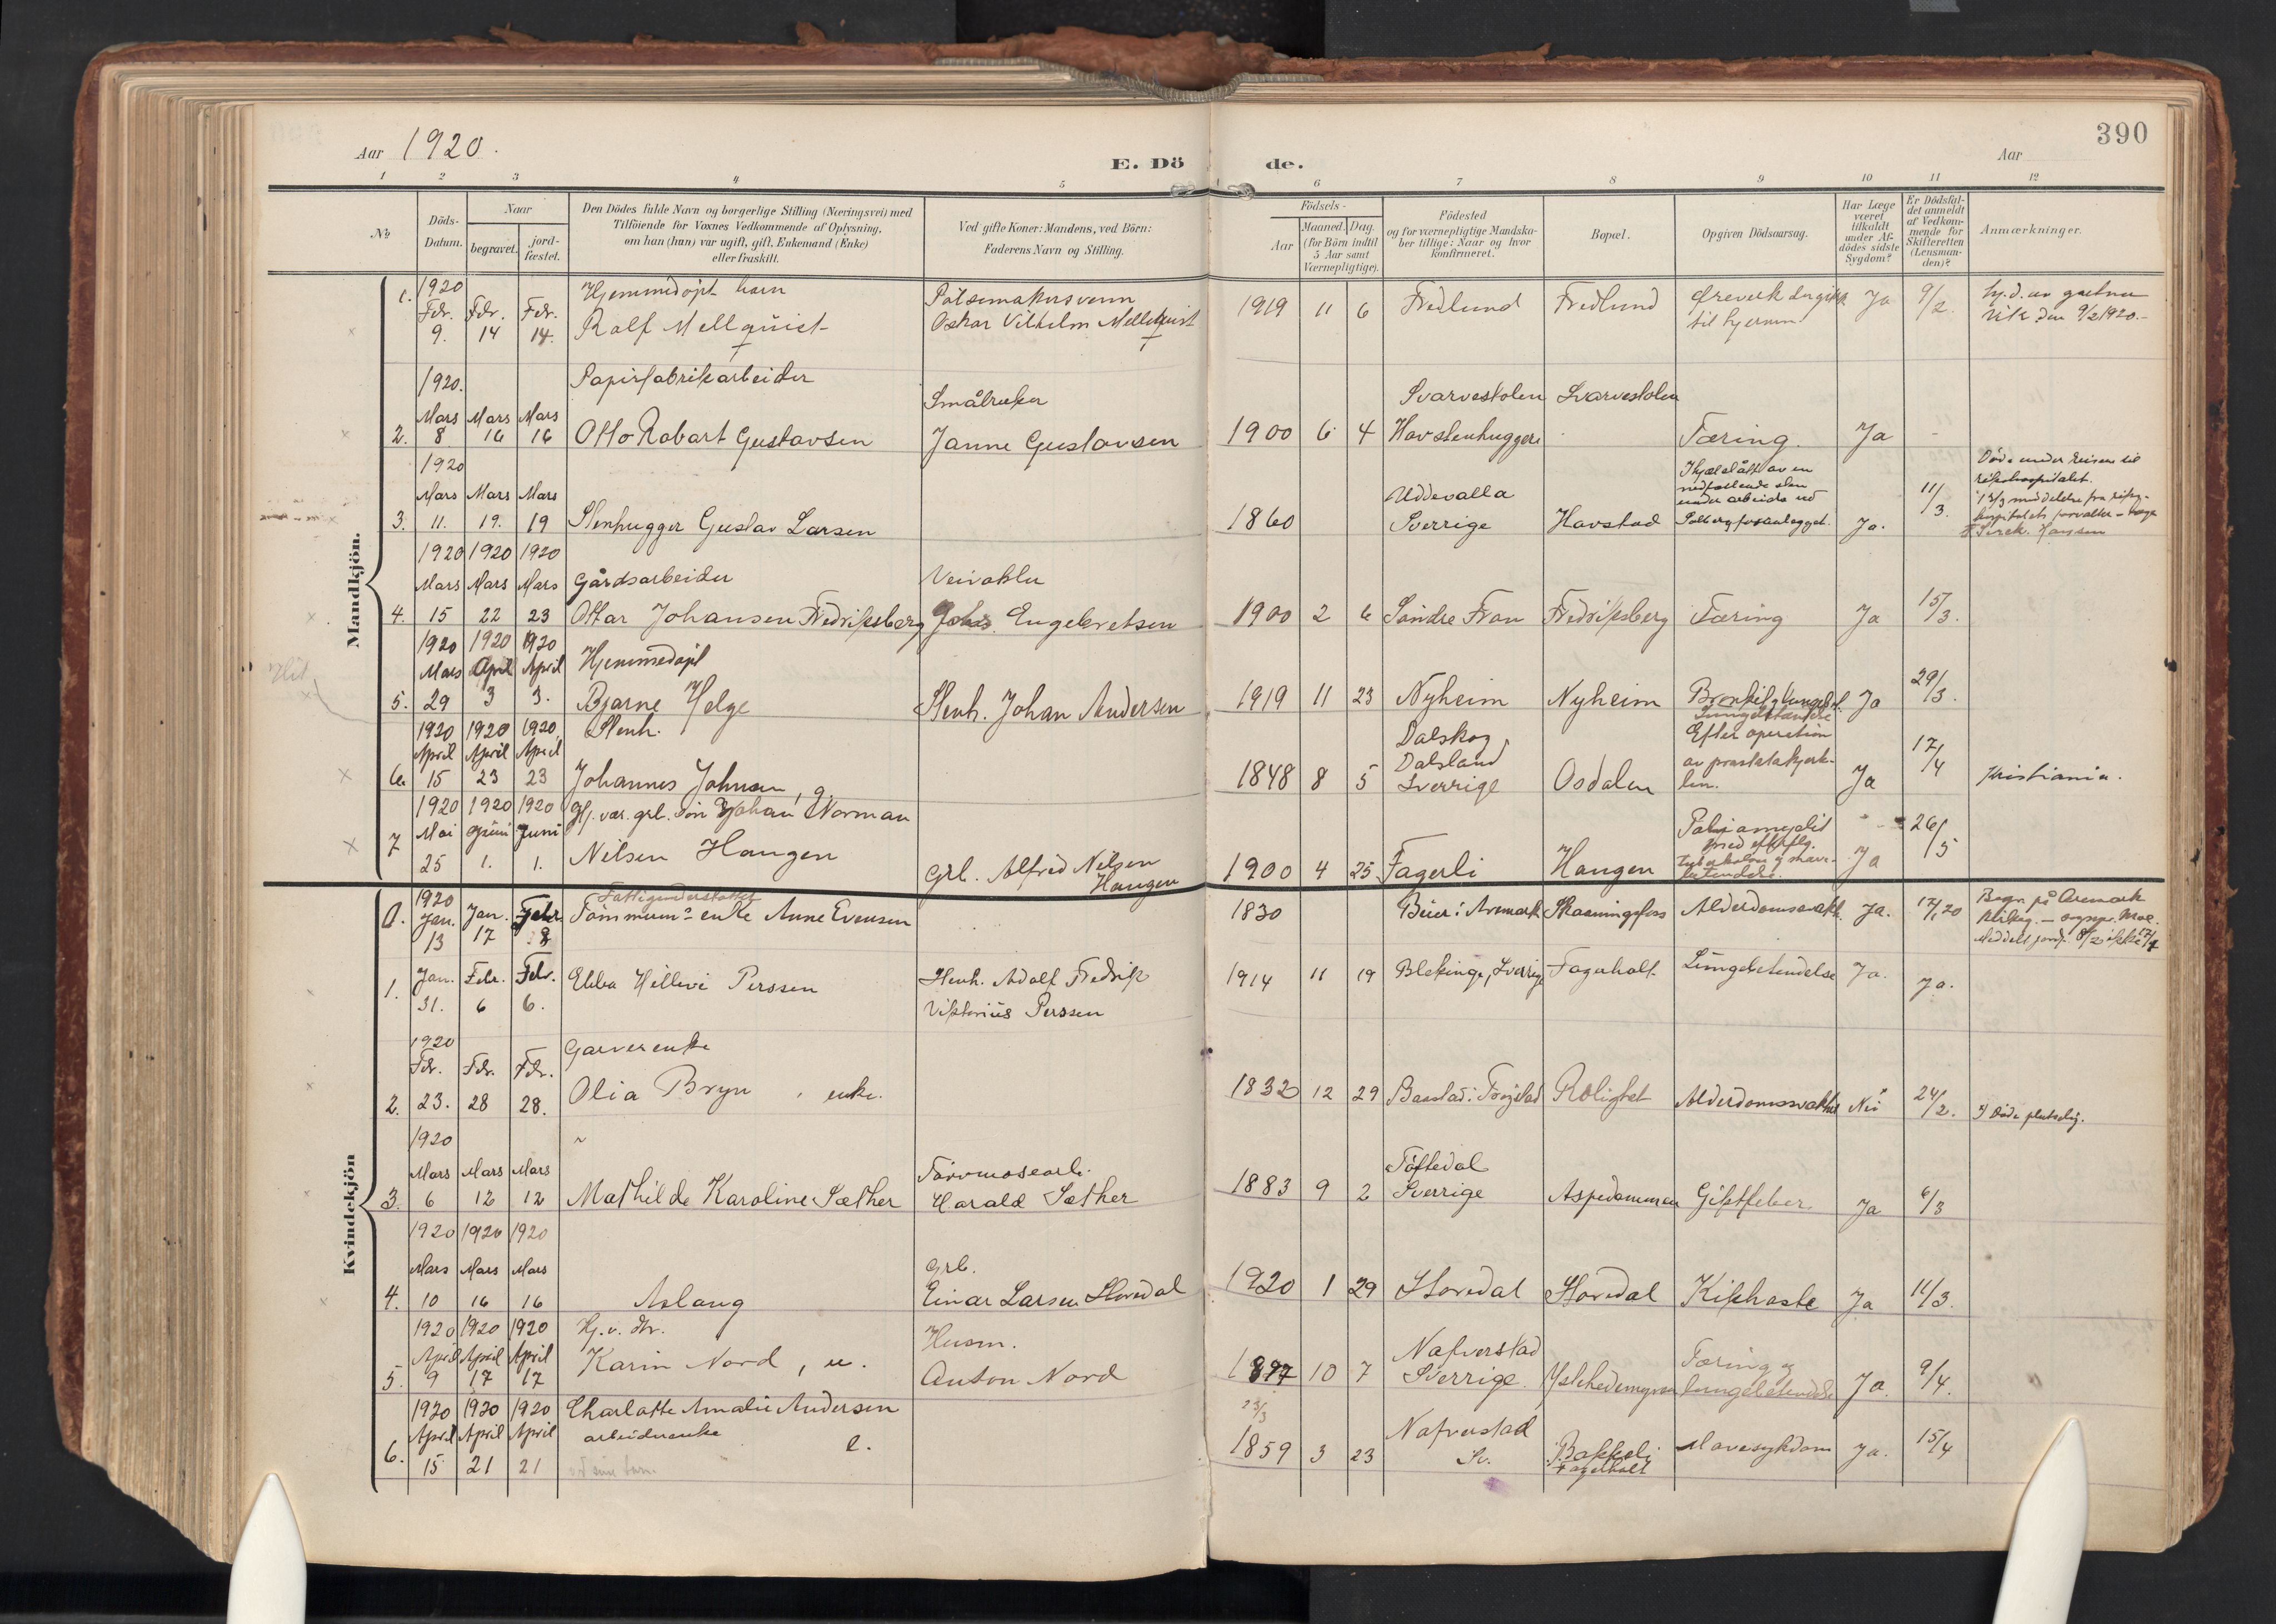 390
Aar 1920.
E. Dö de.
Aar
1 2 3 4 5 6 7 8 9 10 11 12
No
Döds-Datum.
Naar
begravet.
jord-fæstet.
Den Dödes fulde Navn og borgerlige Stilling (Næringsvei) med
Tilföiende for Voxnes Vedkommende af Oplysning,
om han (hun) var ugift, gift, Enkemand (Enke)
eller fraskilt.
Ved gifte Koner: Mandens, ved Börn:
Faderens Navn og Stilling.
Födsels-
Aar
Maaned. Dag.
(for Börn indtil
5 Aar samt
Værnepligtige).
Födested
og for værnepligtige Mandska-
ber tillige: Naar og hvor
konfirmeret.
Bopæl.
Opgiven Dödsaarsag.
Har Læge
været
tilkaldt
under Af-
dödes sidste
Sygdom?
Er Dödsfal-
det anmeldt
af Vedkom-
mende for
Skifteretten
(Lensman-
den)?
Anmærkninger.
Mandkjön.
1. 1920 Febr. 9. Febr. 14 Febr. 14.
Hjemmedöpt barn
Rolf Mellquist
Pölsemakersvenn
Oskar Vilhelm Mellquist
1919 11 6 Fredlund Fredlund
til hjernen.
Ja 9/2
Vik den 9/2 1920.-
2. 1920. Mars 8 Mars 16 Mars 16
Papirfabrikarbeider
Otto Robart Gustavsen
Småbruker
Janne Gustavsen
1900 6 4
Svarvestolen
Havstenhuggeri
Svarvestolen
Tæring. Ja -
3. 1920 Mars 11. Mars 19. Mars 19
Stenhugger Gustav Larsen
1860
Uddevalla
Sverige
Havstad
Ihjælslått av en
nedfallende sten
under arbeide ved
Ja. 11/3.
Döde under reisen til
rikshospitalet.
Hansen
4. 1920 Mars 15 1920 Mars 22 1920 Mars 23
Gårdsarbeider
Ottar Johansen Fredriksberg
Veivokter
Johs. Engebretsen
1900 2 6 Söndre Fron Fredriksberg Tæring Ja 15/3.
5. 1920 Mars 29 1920 April 3 1920 April 3.
Hjemmedöpt
Bjarne Helge
Stenh. Johan Andersen
1919 11 23 Nyheim Nyheim
Ja 29/3.
6. 1920 April 15 1920 April 23 1920 April 23
Stenh.
Johannes Johnsen, g.
1848 8 5
Dalskog
Dalsland
Sverrige
Osdalen
Efter operation
av prostatakjert-
len.
Ja 17/4 Kristiania.
7 1920 Mai 25 1920 Juni 1. 1920 Juni 1.
Hj. vær. grb. sön Johan Norman
Nilsen Haugen
Grb. Alfred Nilsen
Haugen
1900 4 25 Fagerli Haugen
Ja 26/5
Kvindekjön
0. 1920 Jan. 13 Jan. 17 Febr. 8
Fattigunderstöttet
Tömmerm. enke Anne Evensen
1830 Buer i Aremark Skaaningsfoss Alderdomssvakh. Ja. 17/1 20
Begr. på Aremark
1. Jan. 31. Febr. 6 Febr. 6.
Ebba Hillevi Perssen
Stenh. Adolf Fredrik
Viktorius Perssen
1914 11 19 Blekinge, Sverrige Fagerholt Lungebetendelse Ja. Ja.
2. 1920 Febr. 23. Febr. 28 Febr. 28.
Garverenke
Olia Bryn, enke.
1832 12 29 Baastad i Trögstad Rolighet Alderdomssvakhet Nei 24/2. Döde plutselig.
3. 1920 Mars 6 Mars 12 Mars 12
Mathilde Karoline Sæther
Torvmosearb.
Harald Sæther
1883 9 2
Töftedal
Sverrige
Aspedammen Giktfeber. Ja 6/3
4. 1920 Mars 10 1920 Mars 16 1920 Mars 16
Aslaug
Grb.
Einar Larsen Storedal
1920 1 29 Storedal Storedal Kikhoste Ja 11/3.
5. 1920 April 9 1920 April 17 1920 April 17
Hj. v. dtr.
Karin Nord, u.
Husm.
Anton Nord
1897 10 7
Nafverstad
Sverrige.
Tæring og
lungebetendelse
Ja. 9/4.
6. 1920 April 15 1920 April 21 1920 April 21
Charlotte Amalie Andersen
arbeiderenke e.
23/3
1859 3 23
Nafverstad
Sv.
Bakkeli
Fagerholt
Mavesykdom Ja. 15/4